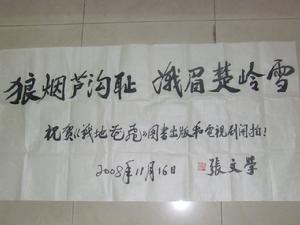 狼烟芦沟耻 娥眉楚岭雪
祝贺《战地苍鸢》图书出版和电视剧开拍!
2008年11月16日
張文學